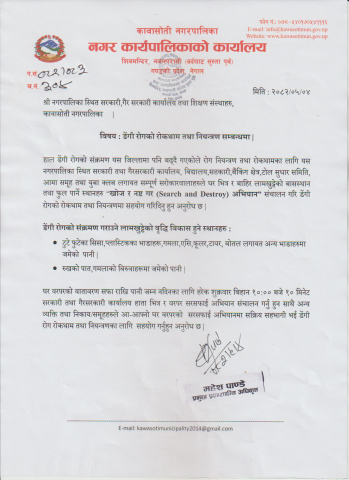 कावासोती नगरपालिका
नगर कार्यपालिकाको कार्यालय
गण्डकी प्रदेश, नेपाल
E-mail: info@kawasotimun.gov.np
Website: www.kawasotimun.gov.np
प.सं. ०८२।०८३
च.नं. ३०५
मिति : २०८२/०५/०४
श्री नगरपालिका स्थित सरकारी,गैर सरकारी कार्यालय तथा शिक्षण संस्थाहरु,
कावासोती नगरपालिका |
विषय : डेंगी रोगको रोकथाम तथा नियन्त्रण सम्बन्धमा |
हाल डेंगी रोगको संक्रमण यस जिल्लामा पनि बढ्दै गएकोले रोग नियन्त्रण तथा रोकथामका लागि यस
नगरपालिका स्थित सरकारी तथा गैरसरकारी कार्यालय, विद्यालय,सहकारी,बैंकिंग क्षेत्र,टोल सुधार समिति,
आमा समूह तथा युवा क्लब लगायत सम्पूर्ण सरोकारवालाहरुले घर भित्र र बाहिर लामखुट्टेको बासस्थान
तथा फुल पार्ने स्थानहरु "खोज र नष्ट गर (Search and Destroy) अभियान" संचालन गरि डेंगी
रोगको रोकथाम तथा नियन्त्रणमा सहयोग गरिदिनु हुन अनुरोध छ |
डेंगी रोगको संक्रमण गराउने लामखुट्टेको वृद्धि विकास हुने स्थानहरु :
● टुटे फुटेका सिसा,प्लास्टिकका भाडाहरु,गमला,एसि,कुलर,टायर, बोतल लगायत अन्य भाडाहरुमा
जमेको पानी |
● रुखको पात,गमलाको बिरुवाहरूमा जमेको पानी |
घर वरपरको वातावरण सफा राखि पानी जम्न नदिनका लागि हरेक शुक्रवार बिहान १०:०० बजे १० मिनेट
सरकारी तथा गैरसरकारी कार्यालय हाता भित्र र वरपर सरसफाई अभियान संचालन गर्नु हुन साथै अन्य
व्यक्ति तथा निकाय/समूहहरुले आ-आफ्नो घर वरपरको सरसफाई अभियानमा सक्रिय सहभागी भई डेंगी
रोग रोकथाम तथा नियन्त्रणका लागि सहयोग गर्नुहुन अनुरोध छ |
महेश पाण्डे
प्रमुख प्रशासकीय अधिकृत
E-mail: kawasotimunicipality2014@gmail.com